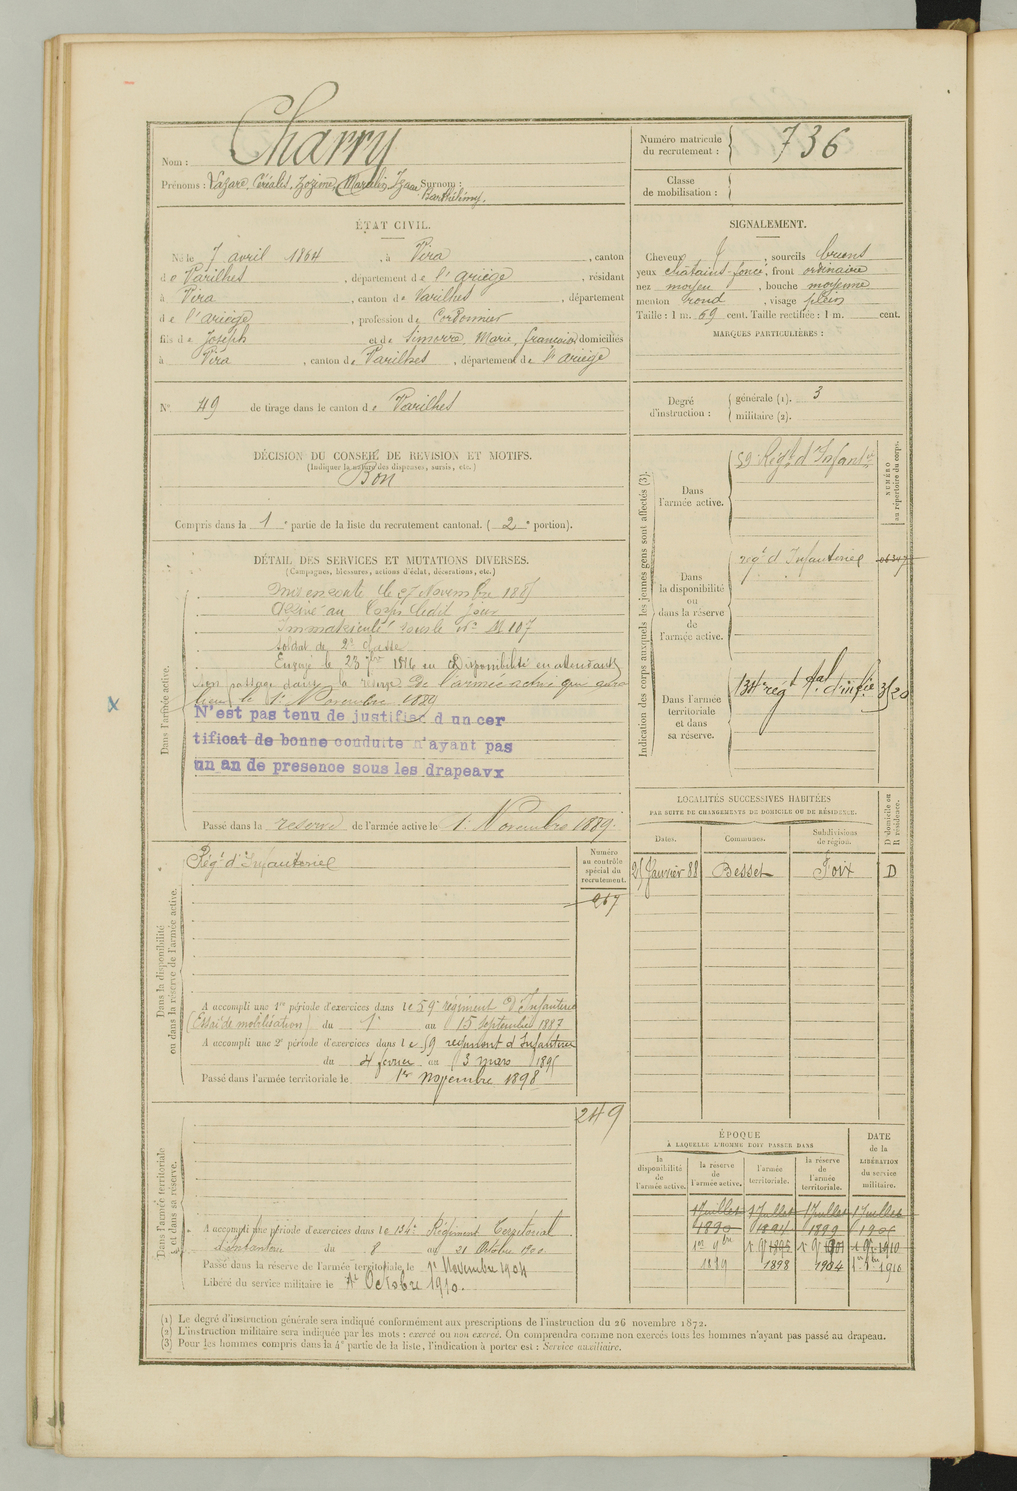 Nom : Charry
Prénoms : Nazare, Céréalis, Zozime, Martulis, Isaac Surnom :
Barthélémy.
ÉTAT CIVIL.
Né le 7 avril 1864, à Vira, canton
de Varilhes, département de l'Ariège, résidant
à Vira, canton de Varilhes, département
de l'Ariège, profession de Cordonnier
fils de Joseph et de Simorre, Marie, françoise, domiciliés
à Vira, canton de Varilhes, département de l'Ariège
N° 49 de tirage dans le canton de Varilhes
DÉCISION DU CONSEIL DE REVISION ET MOTIFS.
(Indiquer la nature des dispenses, sursis, etc.)
Bon
Compris dans la 1e partie de la liste du recrutement cantonal. (2e portion).
DÉTAIL DES SERVICES ET MUTATIONS DIVERSES.
(Campagnes, blessures, actions d'éclat, décorations, etc.)
Dans l'armée active.
Arrivé au Corps ledit Jour
Immatriculé sous le N° M 107
Soldat de 2e classe
le 23 7bre 1886 en Disponibilité en attendant
son passage dans la réserve de l'armée active qui aura
lieu le 1r Novembre 1889
N'est pas tenu de justifier d un cer
tificat de bonne conduite n'ayant pas
un an de presence sous les drapeavx
Passé dans la reserve de l'armée active le 1r Novembre 1889.
Dans la disponibilité
ou dans la réserve de l'armée active.
Rég.t d'Infanterie
Numéro
au contrôle
spécial du
recrutement.
267
A accompli une 1re période d'exercices dans le 59e régiment d'Infanterie
(Essai de mobilisation) du 1r au 15 septembre 1887
A accompli une 2e période d'exercices dans le 59 regiment d'Infanterie
du 4 février au 3 mars 1895
Passé dans l'armée territoriale le 1er novembre 1898
249
Dans l'armée territoriale
et dans sa réserve.
A accompli une période d'exercices dans le 134e Régiment Territorial
d'infanterie du 8 au 21 Octobre 1900
Passé dans la réserve de l'armée territoriale le 1r Novembre 1904
Libéré du service militaire le 1r Octobre 1910.
Numéro matricule
du recrutement : 736
Classe
de mobilisation :
SIGNALEMENT.
Cheveux et, sourcils bruns
yeux châtains-foncé, front ordinaire
nez moyen, bouche moyenne
menton rond, visage plein
Taille : 1 m. 69 cent. Taille rectifiée : 1 m. cent.
MARQUES PARTICULIÈRES :
Degré
d'instruction :
générale (1). 3
militaire (2).
Indication des corps auxquels les jeunes gens sont affectés (3).
NUMÉRO
au répertoire du corps.
Dans
l'armée active.
59 Rég.t d'Infant.ie
Dans
la disponibilité
ou
dans la réserve
de
l'armée active.
rég.t d'Infanterie
06347
Dans l'armée
territoriale
et dans
sa réserve.
134e rég.t t.al d'inf.ie 3/20
LOCALITÉS SUCCESSIVES HABITÉES
PAR SUITE DE CHANGEMENTS DE DOMICILE OU DE RÉSIDENCE.
Dates. Communes. Subdivisions
de région.
D domicile ou
R résidence.
25 Janvier 88 Besset Foix D
ÉPOQUE
À LAQUELLE L'HOMME DOIT PASSER DANS
DATE
de la
LIBÉRATION
du service
militaire.
la
disponibilité
de
l'armée active.
la réserve
de
l'armée active.
l'armée
territoriale.
la réserve
de
l'armée
territoriale.
1 Juillet 1 Juillet 1 Juillet 1 Juillet
1890 1894 1899 1905
1er 9bre 1r 9 1895 1r 9 1901 1r 9 1910
1889 1898 1904 1910
(1) Le degré d'instruction générale sera indiqué conformément aux prescriptions de l'instruction du 26 novembre 1872.
(2) L'instruction militaire sera indiquée par les mots : exercé ou non exercé. On comprendra comme non exercés tous les hommes n'ayant pas passé au drapeau.
(3) Pour les hommes compris dans la 4e partie de la liste, l'indication à porter est : Service auxiliaire.